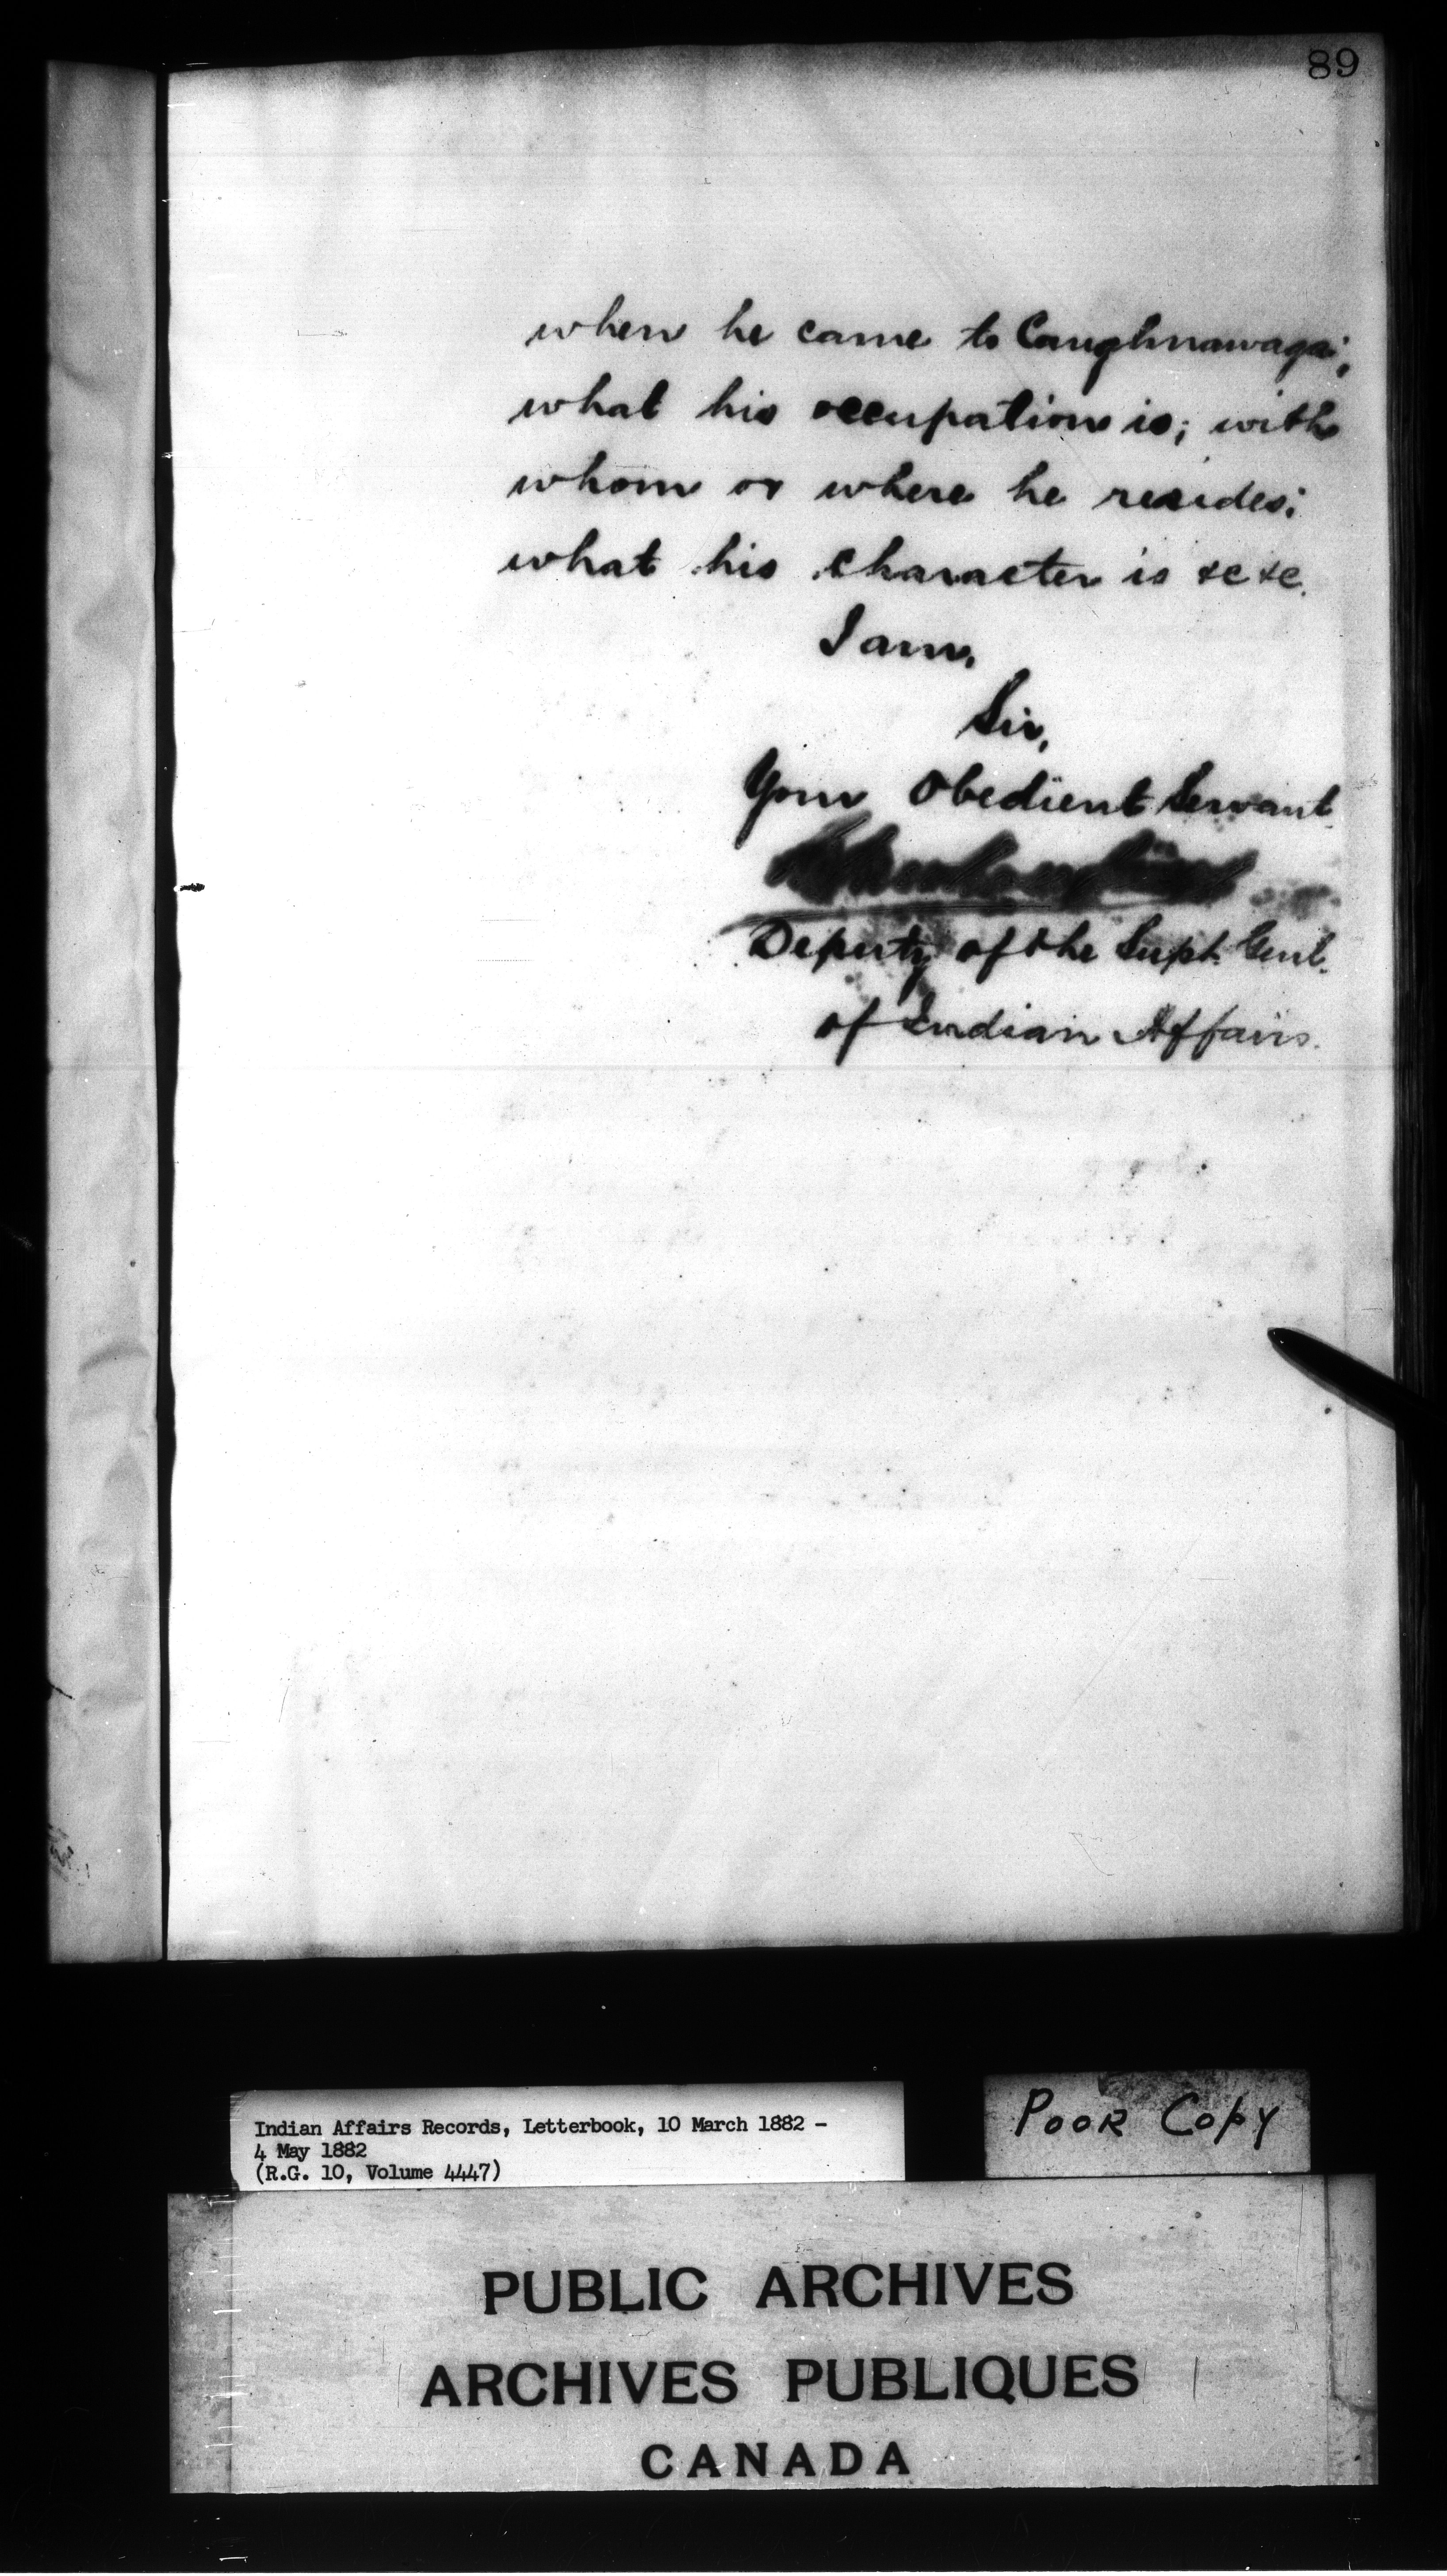 89
when he came to Caughnawaga;
what his occupation is; with
whom or where he resides;
what his character is &c &c.
I am,
Sir,
Your Obedient Servant
Deputy of the Supt. Genl.
of Indian Affairs.
Indian Affairs Records, Letterbook, 10 March 1882 -
4 May 1882
(R.G. 10, Volume 4447)
POOR COPY
PUBLIC ARCHIVES
ARCHIVES PUBLIQUES
CANADA